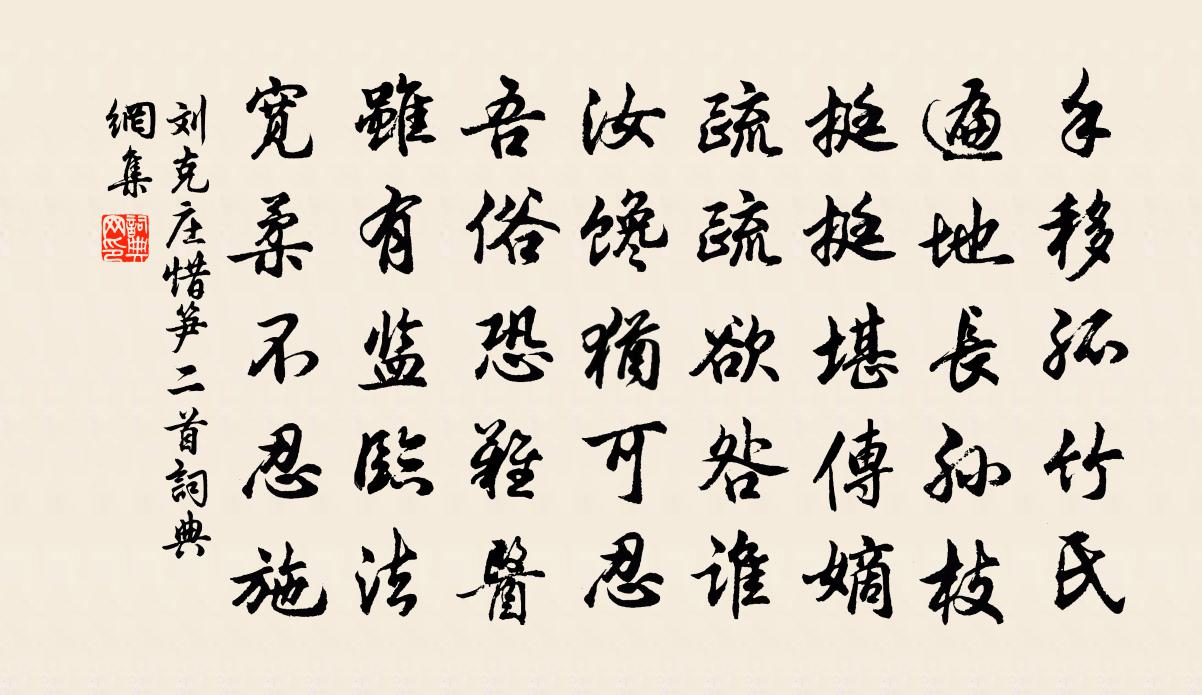 手移孤竹氏
遍地長孙枝
挺挺堪傳嫡
疏疏欲咎谁
汝馋猶可忍
吾俗恐難醫
雖有监臨法
寬柔不忍施
刘克庄惜笋二首詞典
網集
詞典网印